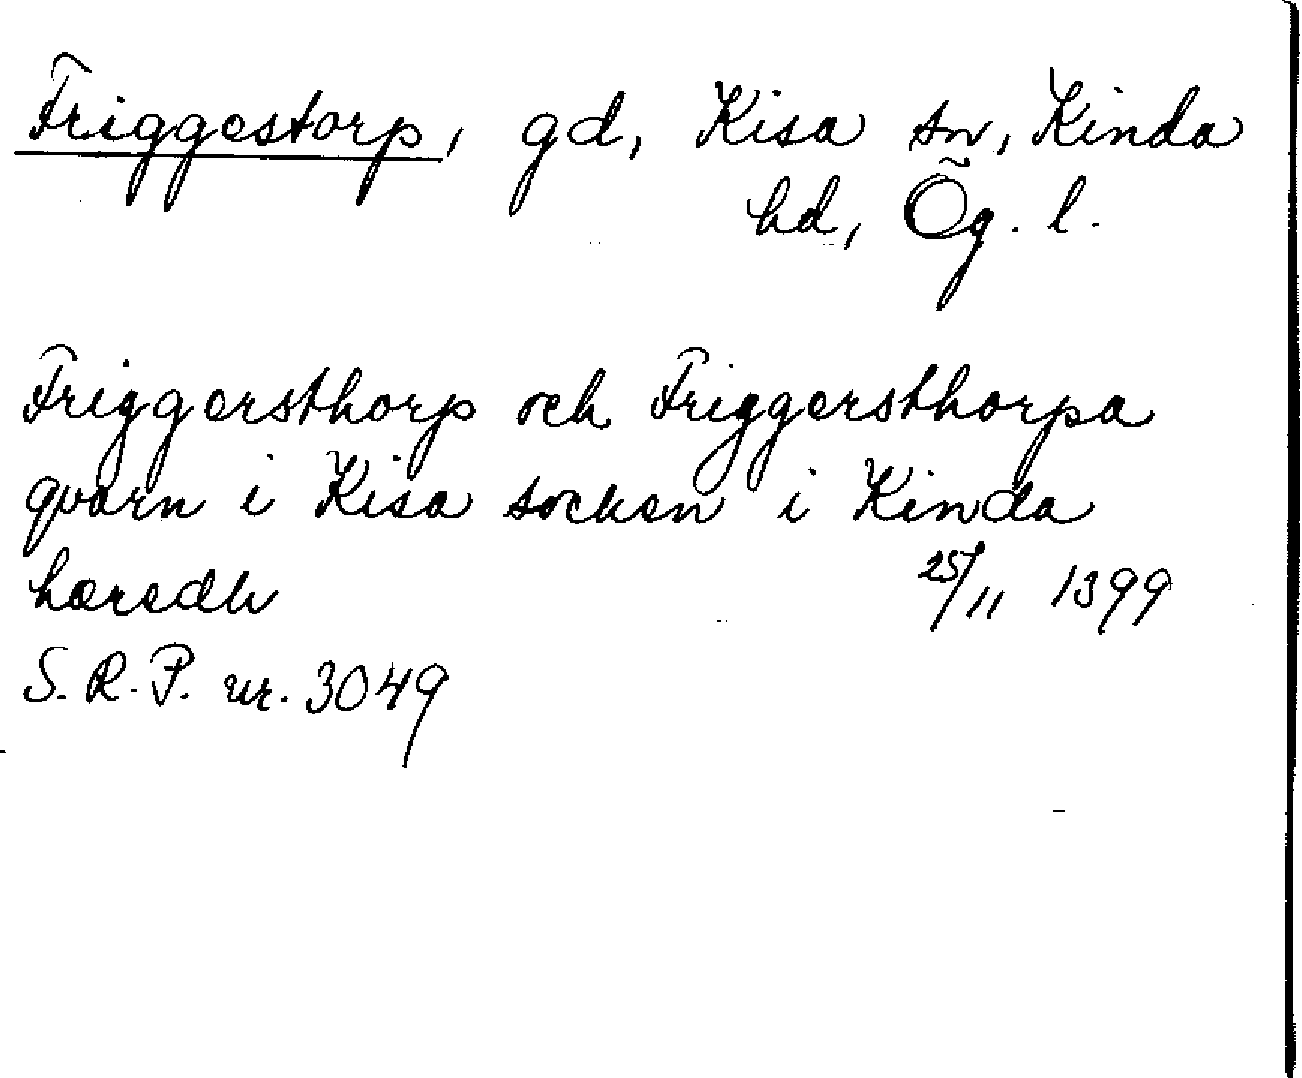 Friggestorp, gd, Kisa sn, Kinda
hd, Ög. l.
Friggersthorp och Friggersthorpa
qvarn i Kisa socken i Kinda
hæredh
25/11 1399
S. R. P. nr. 3049